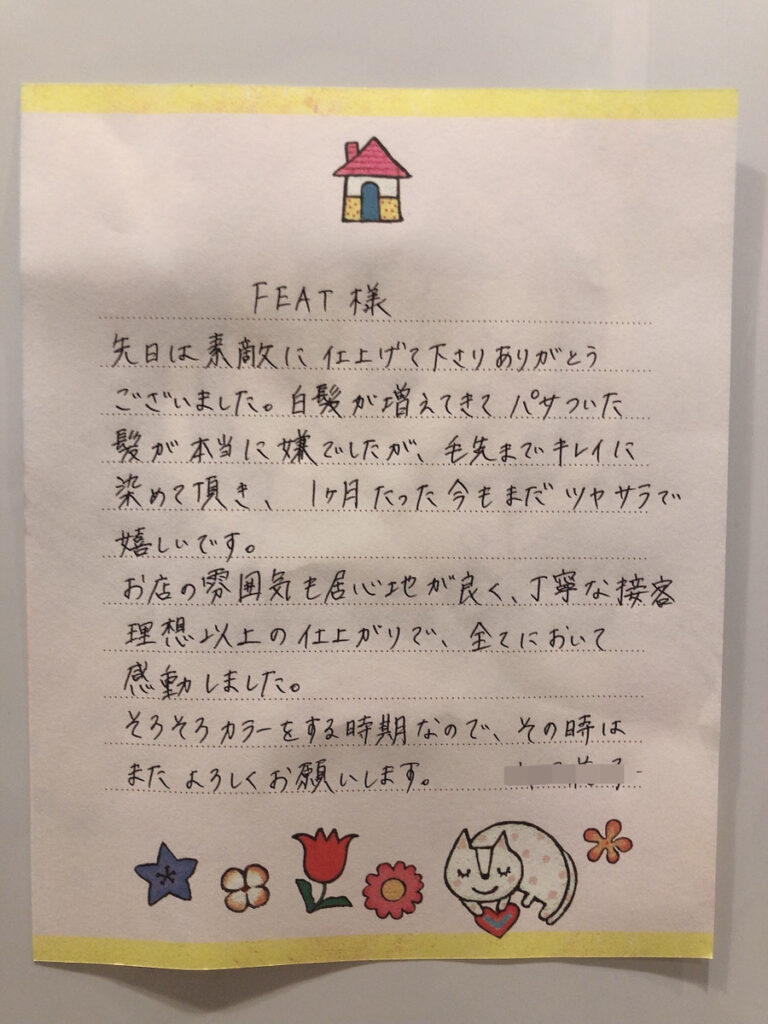 FEAT 様
先日は素敵に仕上げて下さりありがとう
ございました。白髪が増えてきて パサついた
髪が本当に嫌でしたが、毛先までキレイに
染めて頂き、1ヶ月たった今もまだツヤサラで
嬉しいです。
お店の雰囲気も居心地が良く、丁寧な接客
理想以上の仕上がりで、全てにおいて
感動しました。
そろそろカラーをする時期なので、その時は
またよろしくお願いします。